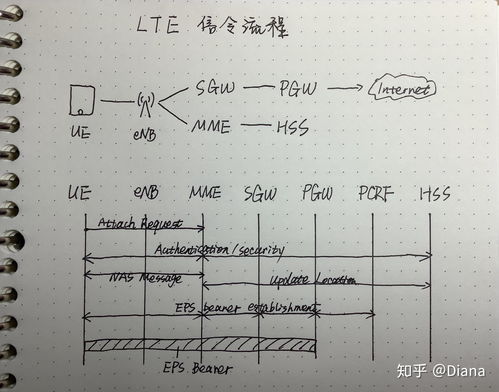 LTE 信令流程
SGW PGW Internet
UE eNB
MME HSS
UE eNB MME SGW PGW PCRF HSS
Attach Request
Authentication/security
NAS Message
Update Location
EPS bearer establishment
EPS Bearer
知乎 @Diana